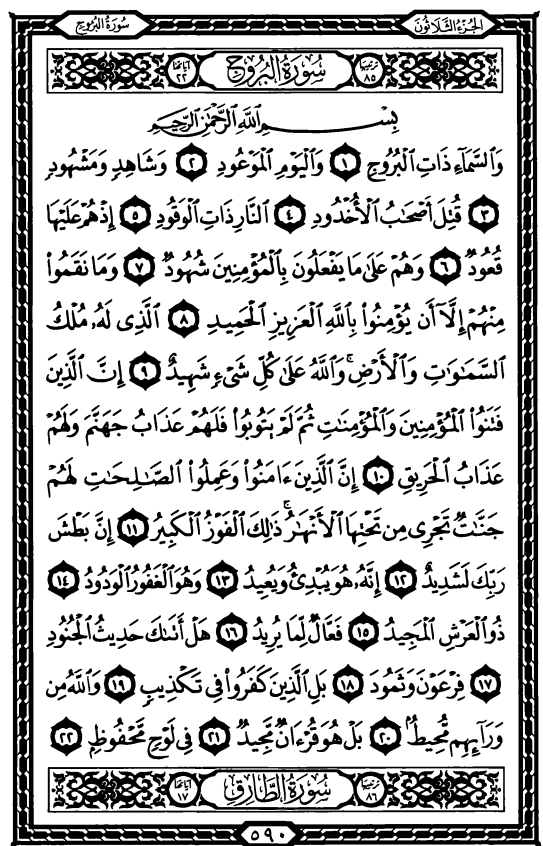 الجزء الثلاثون
سورة البروج
ترتيبها ٨٥
سورة البروج
آياتها ٢٢
بِسْمِ اللَّهِ الرَّحْمَٰنِ الرَّحِيمِ
وَالسَّمَآءِ ذَاتِ الْبُرُوجِ ١ وَالْيَوْمِ الْمَوْعُودِ ٢ وَشَاهِدٍ وَمَشْهُودٍ
٣ قُتِلَ أَصْحَٰبُ الْأُخْدُودِ ٤ النَّارِ ذَاتِ الْوَقُودِ ٥ إِذْ هُمْ عَلَيْهَا
قُعُودٌ ٦ وَهُمْ عَلَىٰ مَا يَفْعَلُونَ بِالْمُؤْمِنِينَ شُهُودٌ ٧ وَمَا نَقَمُوا۟
مِنْهُمْ إِلَّآ أَن يُؤْمِنُوا۟ بِاللَّهِ الْعَزِيزِ الْحَمِيدِ ٨ الَّذِى لَهُۥ مُلْكُ
السَّمَٰوَٰتِ وَالْأَرْضِ ۚ وَاللَّهُ عَلَىٰ كُلِّ شَىْءٍ شَهِيدٌ ٩ إِنَّ الَّذِينَ
فَتَنُوا۟ الْمُؤْمِنِينَ وَالْمُؤْمِنَٰتِ ثُمَّ لَمْ يَتُوبُوا۟ فَلَهُمْ عَذَابُ جَهَنَّمَ وَلَهُمْ
عَذَابُ الْحَرِيقِ ١٠ إِنَّ الَّذِينَ ءَامَنُوا۟ وَعَمِلُوا۟ الصَّٰلِحَٰتِ لَهُمْ
جَنَّٰتٌ تَجْرِى مِن تَحْتِهَا الْأَنْهَٰرُ ۚ ذَٰلِكَ الْفَوْزُ الْكَبِيرُ ١١ إِنَّ بَطْشَ
رَبِّكَ لَشَدِيدٌ ١٢ إِنَّهُۥ هُوَ يُبْدِئُ وَيُعِيدُ ١٣ وَهُوَ الْغَفُورُ الْوَدُودُ ١٤
ذُو الْعَرْشِ الْمَجِيدُ ١٥ فَعَّالٌ لِّمَا يُرِيدُ ١٦ هَلْ أَتَىٰكَ حَدِيثُ الْجُنُودِ
١٧ فِرْعَوْنَ وَثَمُودَ ١٨ بَلِ الَّذِينَ كَفَرُوا۟ فِى تَكْذِيبٍ ١٩ وَاللَّهُ مِن
وَرَآئِهِم مُّحِيطٌۢ ٢٠ بَلْ هُوَ قُرْءَانٌ مَّجِيدٌ ٢١ فِى لَوْحٍ مَّحْفُوظٍۭ ٢٢
ترتيبها ٨٦
سورة الطارق
آياتها ١٧
٥٩٠